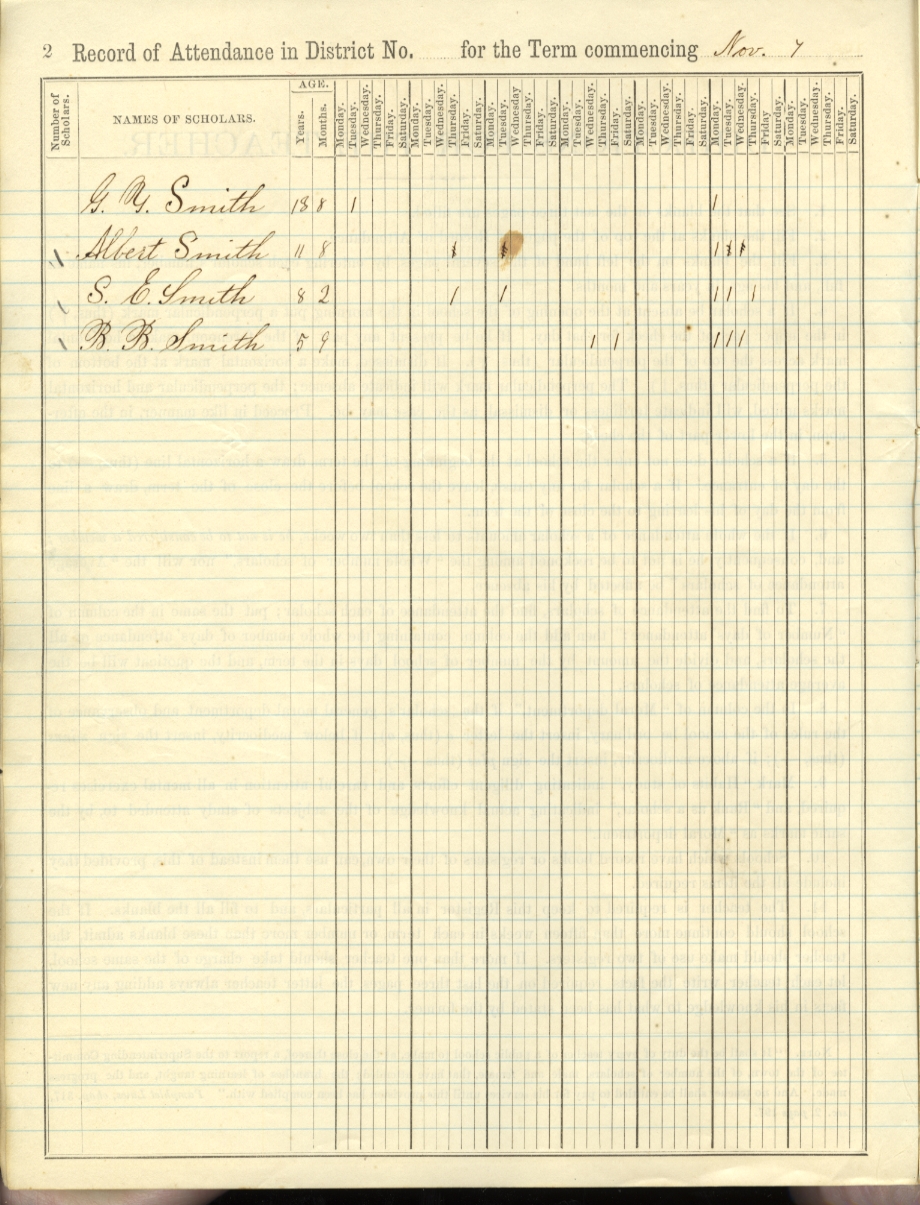 2 Record of Attendance in District No. for the Term commencing Nov. 7
Number of Scholars.
NAMES OF SCHOLARS.
AGE.
Years. Months. Monday. Tuesday. Wednesday. Thursday. Friday. Saturday. Monday. Tuesday. Wednesday. Thursday. Friday. Saturday. Monday. Tuesday. Wednesday Thursday. Friday. Saturday. Monday. Tuesday. Wednesday. Thursday. Friday. Saturday. Monday. Tuesday. Wednesday. Thursday. Friday. Saturday. Monday. Tuesday. Wednesday. Thursday. Friday Saturday. Monday. Tuesday. Wednesday. Thursday. Friday. Saturday.
G. Y. Smith 18 8 1 1
Albert Smith 11 8 1 1 1 1 1
S. E. Smith 8 2 1 1 1 1 1
B. B. Smith 5 9 1 1 1 1 1